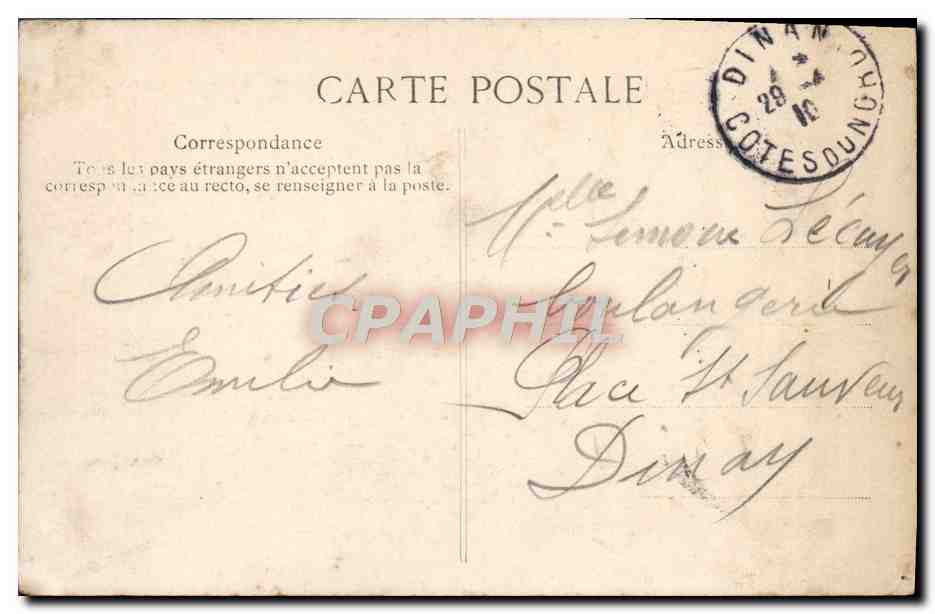 CARTE POSTALE
Correspondance
Tous les pays étrangers n'acceptent pas la
correspondance au recto, se renseigner à la poste.
Amitiés
Emilie
Adresse
DINAN
29 - 4
10
COTES DU NORD
Melle Simone
boulangerie
Place St Sauveur
Dinan
CPAPHIL